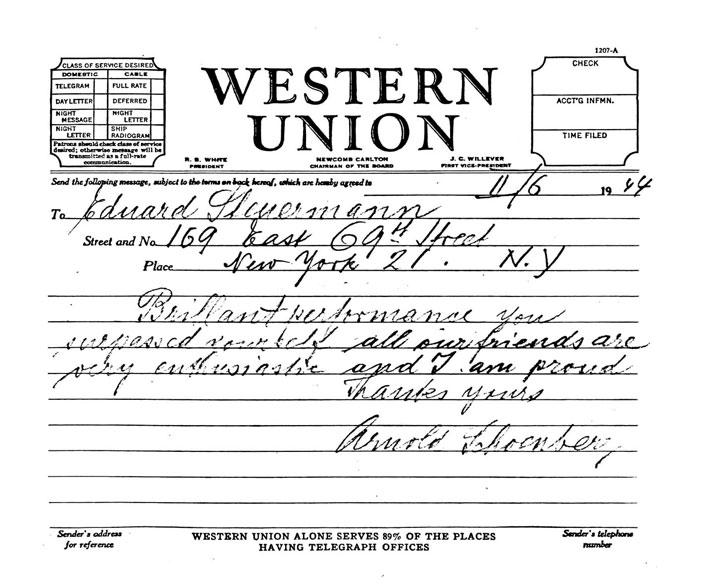 1207-A
CLASS OF SERVICE DESIRED
DOMESTIC CABLE
TELEGRAM FULL RATE
DAY LETTER DEFERRED
NIGHT MESSAGE NIGHT LETTER
NIGHT LETTER SHIP RADIOGRAM
Patrons should check class of service
desired; otherwise message will be
transmitted as a full-rate
communication.
WESTERN
UNION
R. B. WHITE
PRESIDENT
NEWCOMB CARLTON
CHAIRMAN OF THE BOARD
J. C. WILLEVER
FIRST VICE-PRESIDENT
CHECK
ACCT'G INFMN.
TIME FILED
Send the following message, subject to the terms on back hereof, which are hereby agreed to
11/6 1944
To Eduard Steuermann
Street and No. 169 East 69th Street
Place New York 21. N.Y
Brillant performance you
surpassed yourself all our friends are
very enthusiastic and I am proud
Thanks yours
Arnold Schoenberg
Sender's address
for reference
WESTERN UNION ALONE SERVES 89% OF THE PLACES
HAVING TELEGRAPH OFFICES
Sender's telephone
number